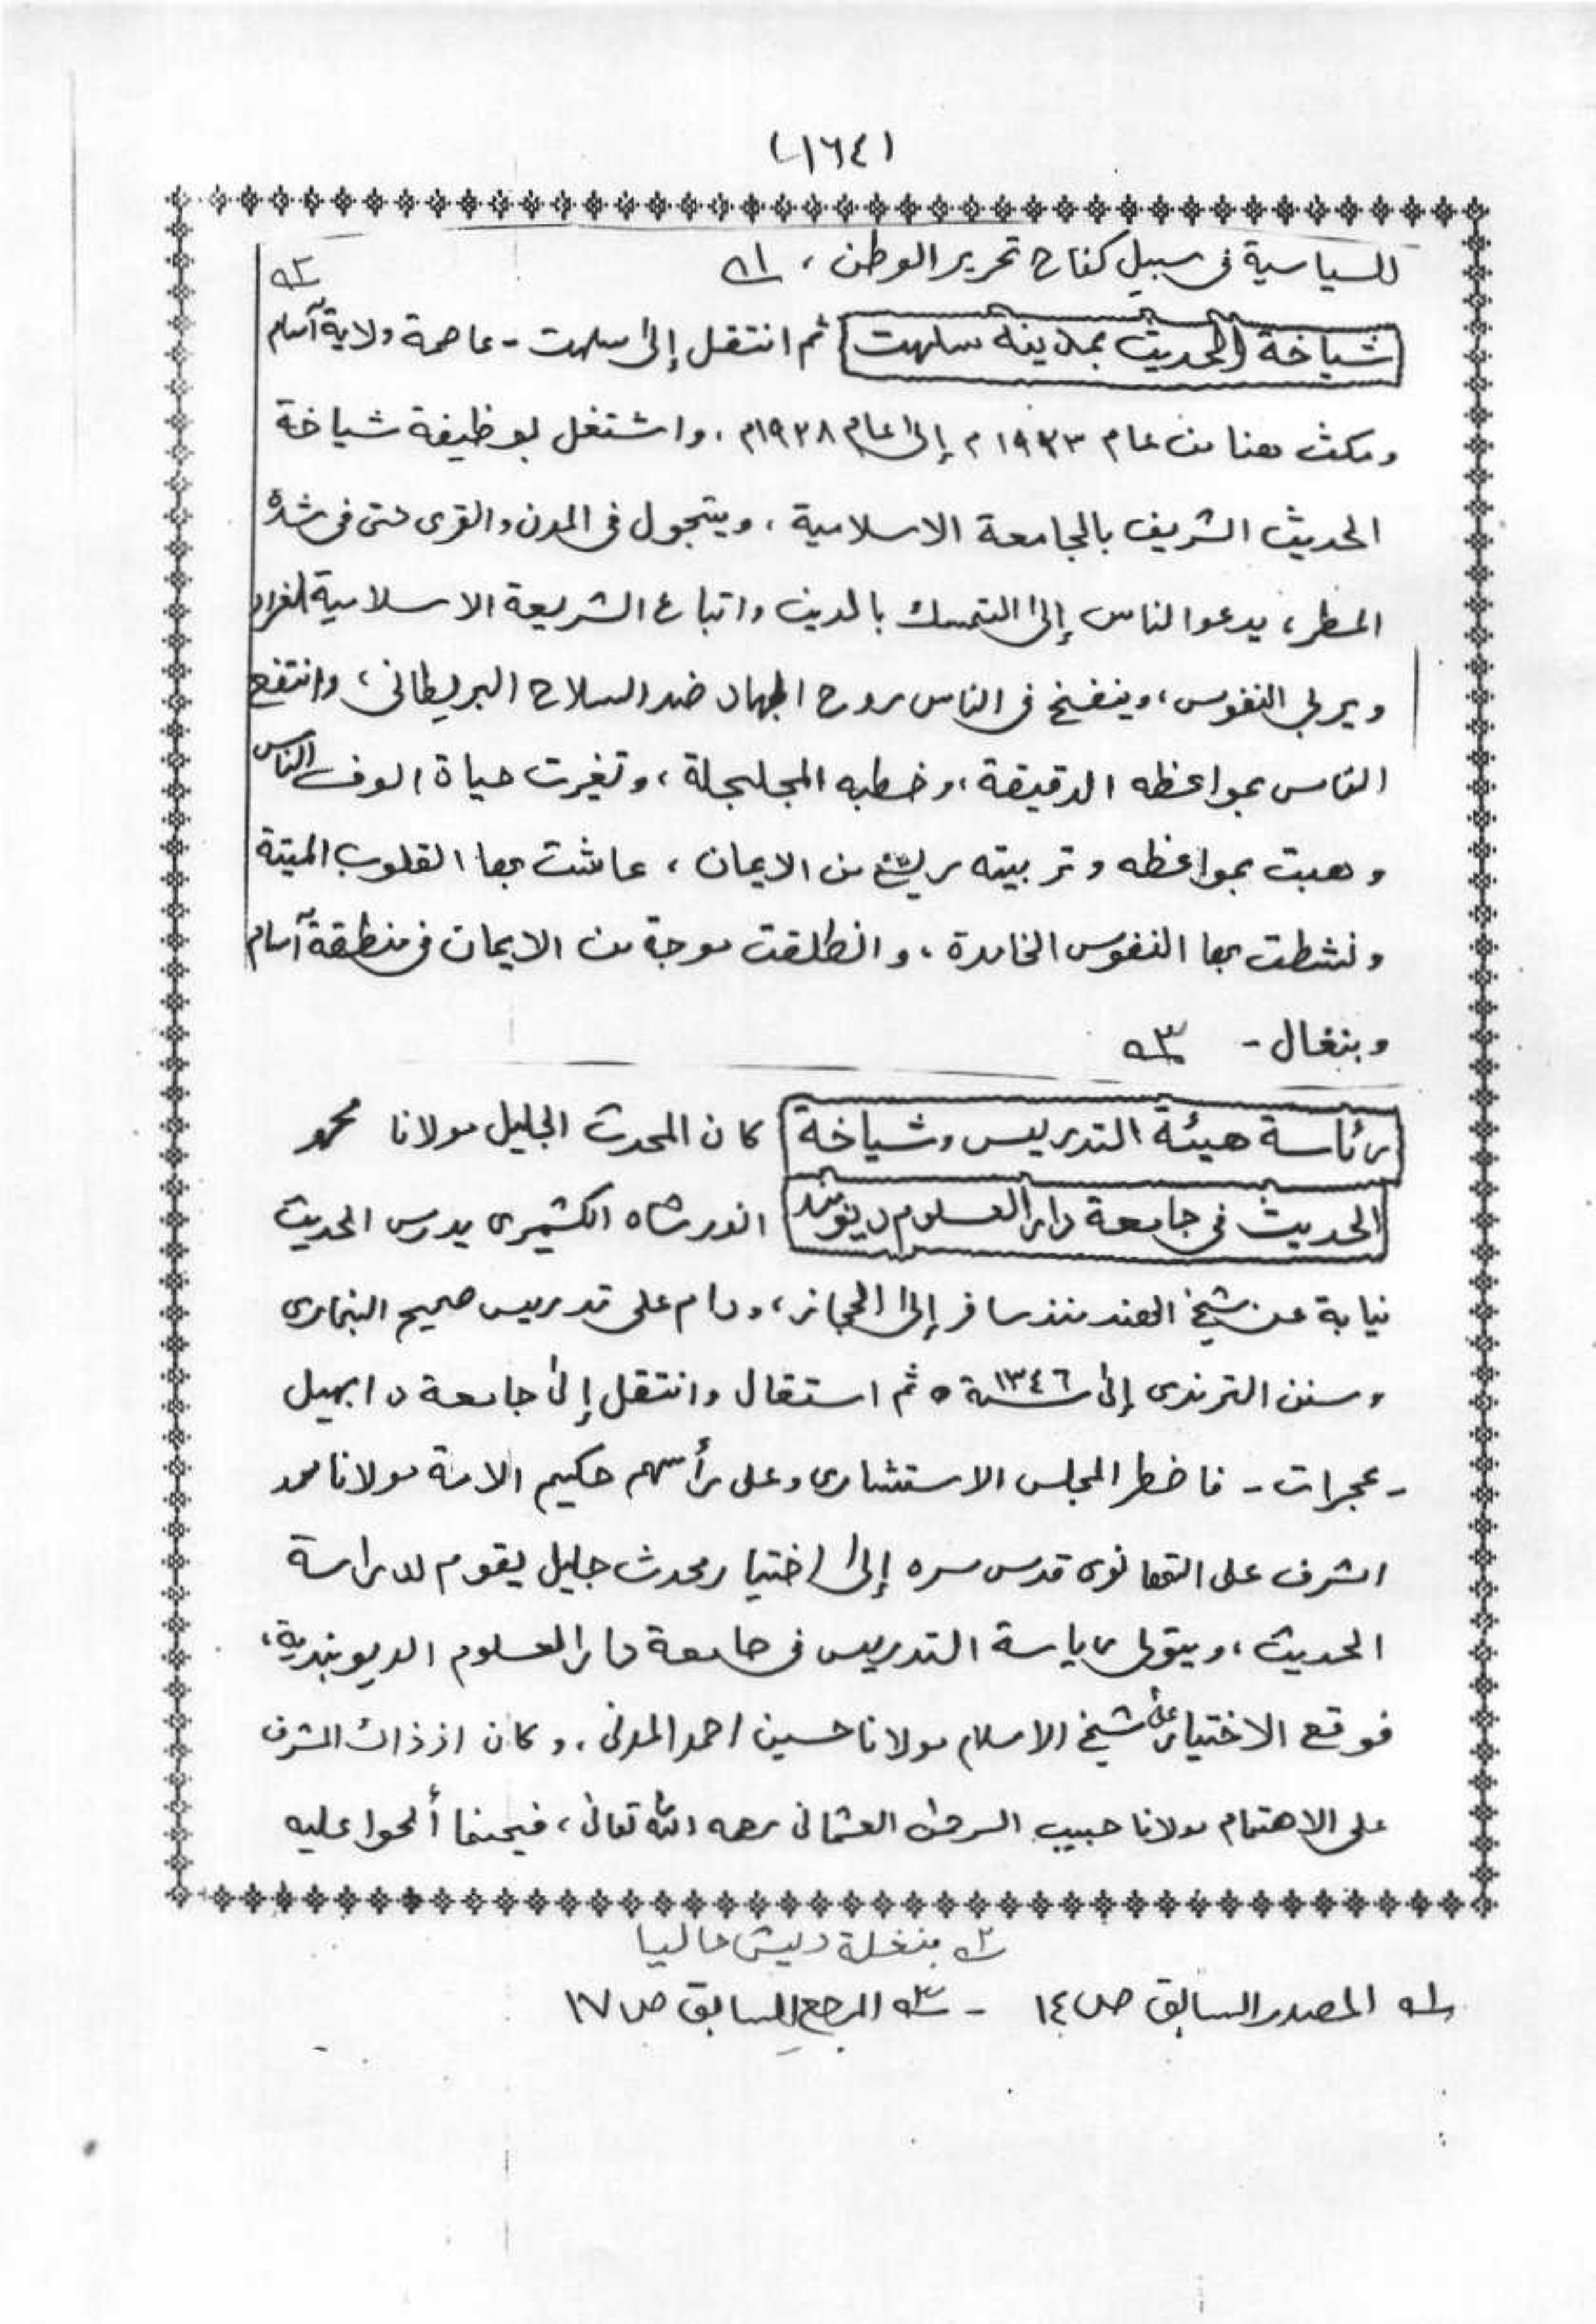 (١٦٤)
للسياسية فى سبيل كفاح تحرير الوطن ، ١ـ
٢ـ
شياخة الحديث بمدينة سلهت ثم انتقل إلى سلهت - عاصمة ولاية آسام
ومكث هنا من عام ١٩٢٣م إلى عام ١٩٢٨م ، واشتغل بوظيفة شياخة
الحديث الشريف بالجامعة الاسلامية ، ويتجول فى المدن والقرى حتى فى شدة
المطر ، يدعوا الناس إلى التمسك بالدين واتباع الشريعة الاسلامية الغراء
ويربي النفوس ، وينفخ فى الناس روح الجهاد ضد السلاح البريطانى ، وانتفع
الناس بمواعظه الدقيقة ، وخطبه المجلجلة ، وتغيرت حياة الوف الناس
وهبت بمواعظه وتربيته ريح من الايمان ، عاشت بها القلوب الميتة
ونشطت بها النفوس الخامدة ، وانطلقت موجة من الايمان فى منطقة آسام
وبنغال - ٣ـ
رئاسة هيئة التدريس وشياخة كان المحدث الجليل مولانا محمد
الحديث فى جامعة دار العلوم ديوبند انور شاه الكشميرى يدرس الحديث
نيابة عن شيخ الهند منذ سافر إلى الحجاز ، ودام على تدريس صحيح البخارى
وسنن الترمذى إلى سنة ١٣٤٦ ه ثم استقال وانتقل إلى جامعة دابهيل
- عجرات - فاضطر المجلس الاستشارى وعلى رأسهم حكيم الامة مولانا محمد
اشرف على التهانوى قدس سره إلى اختيار محدث جليل يقوم لدراسة
الحديث ، ويتولى رياسة التدريس فى جامعة دار العلوم الديوبندية ،
فوقع الاختيار على شيخ الاسلام مولانا حسين احمد المدنى ، وكان اذ ذاك المشرف
على الاهتمام مولانا حبيب الرحمن العثمانى رحمه الله تعالى ، فحينما ألحوا عليه
٢ـ بنغلة ديش حاليا
١ـ المصدر السابق ص ١٤ - ٣ـ المرجع السابق ص ١٧